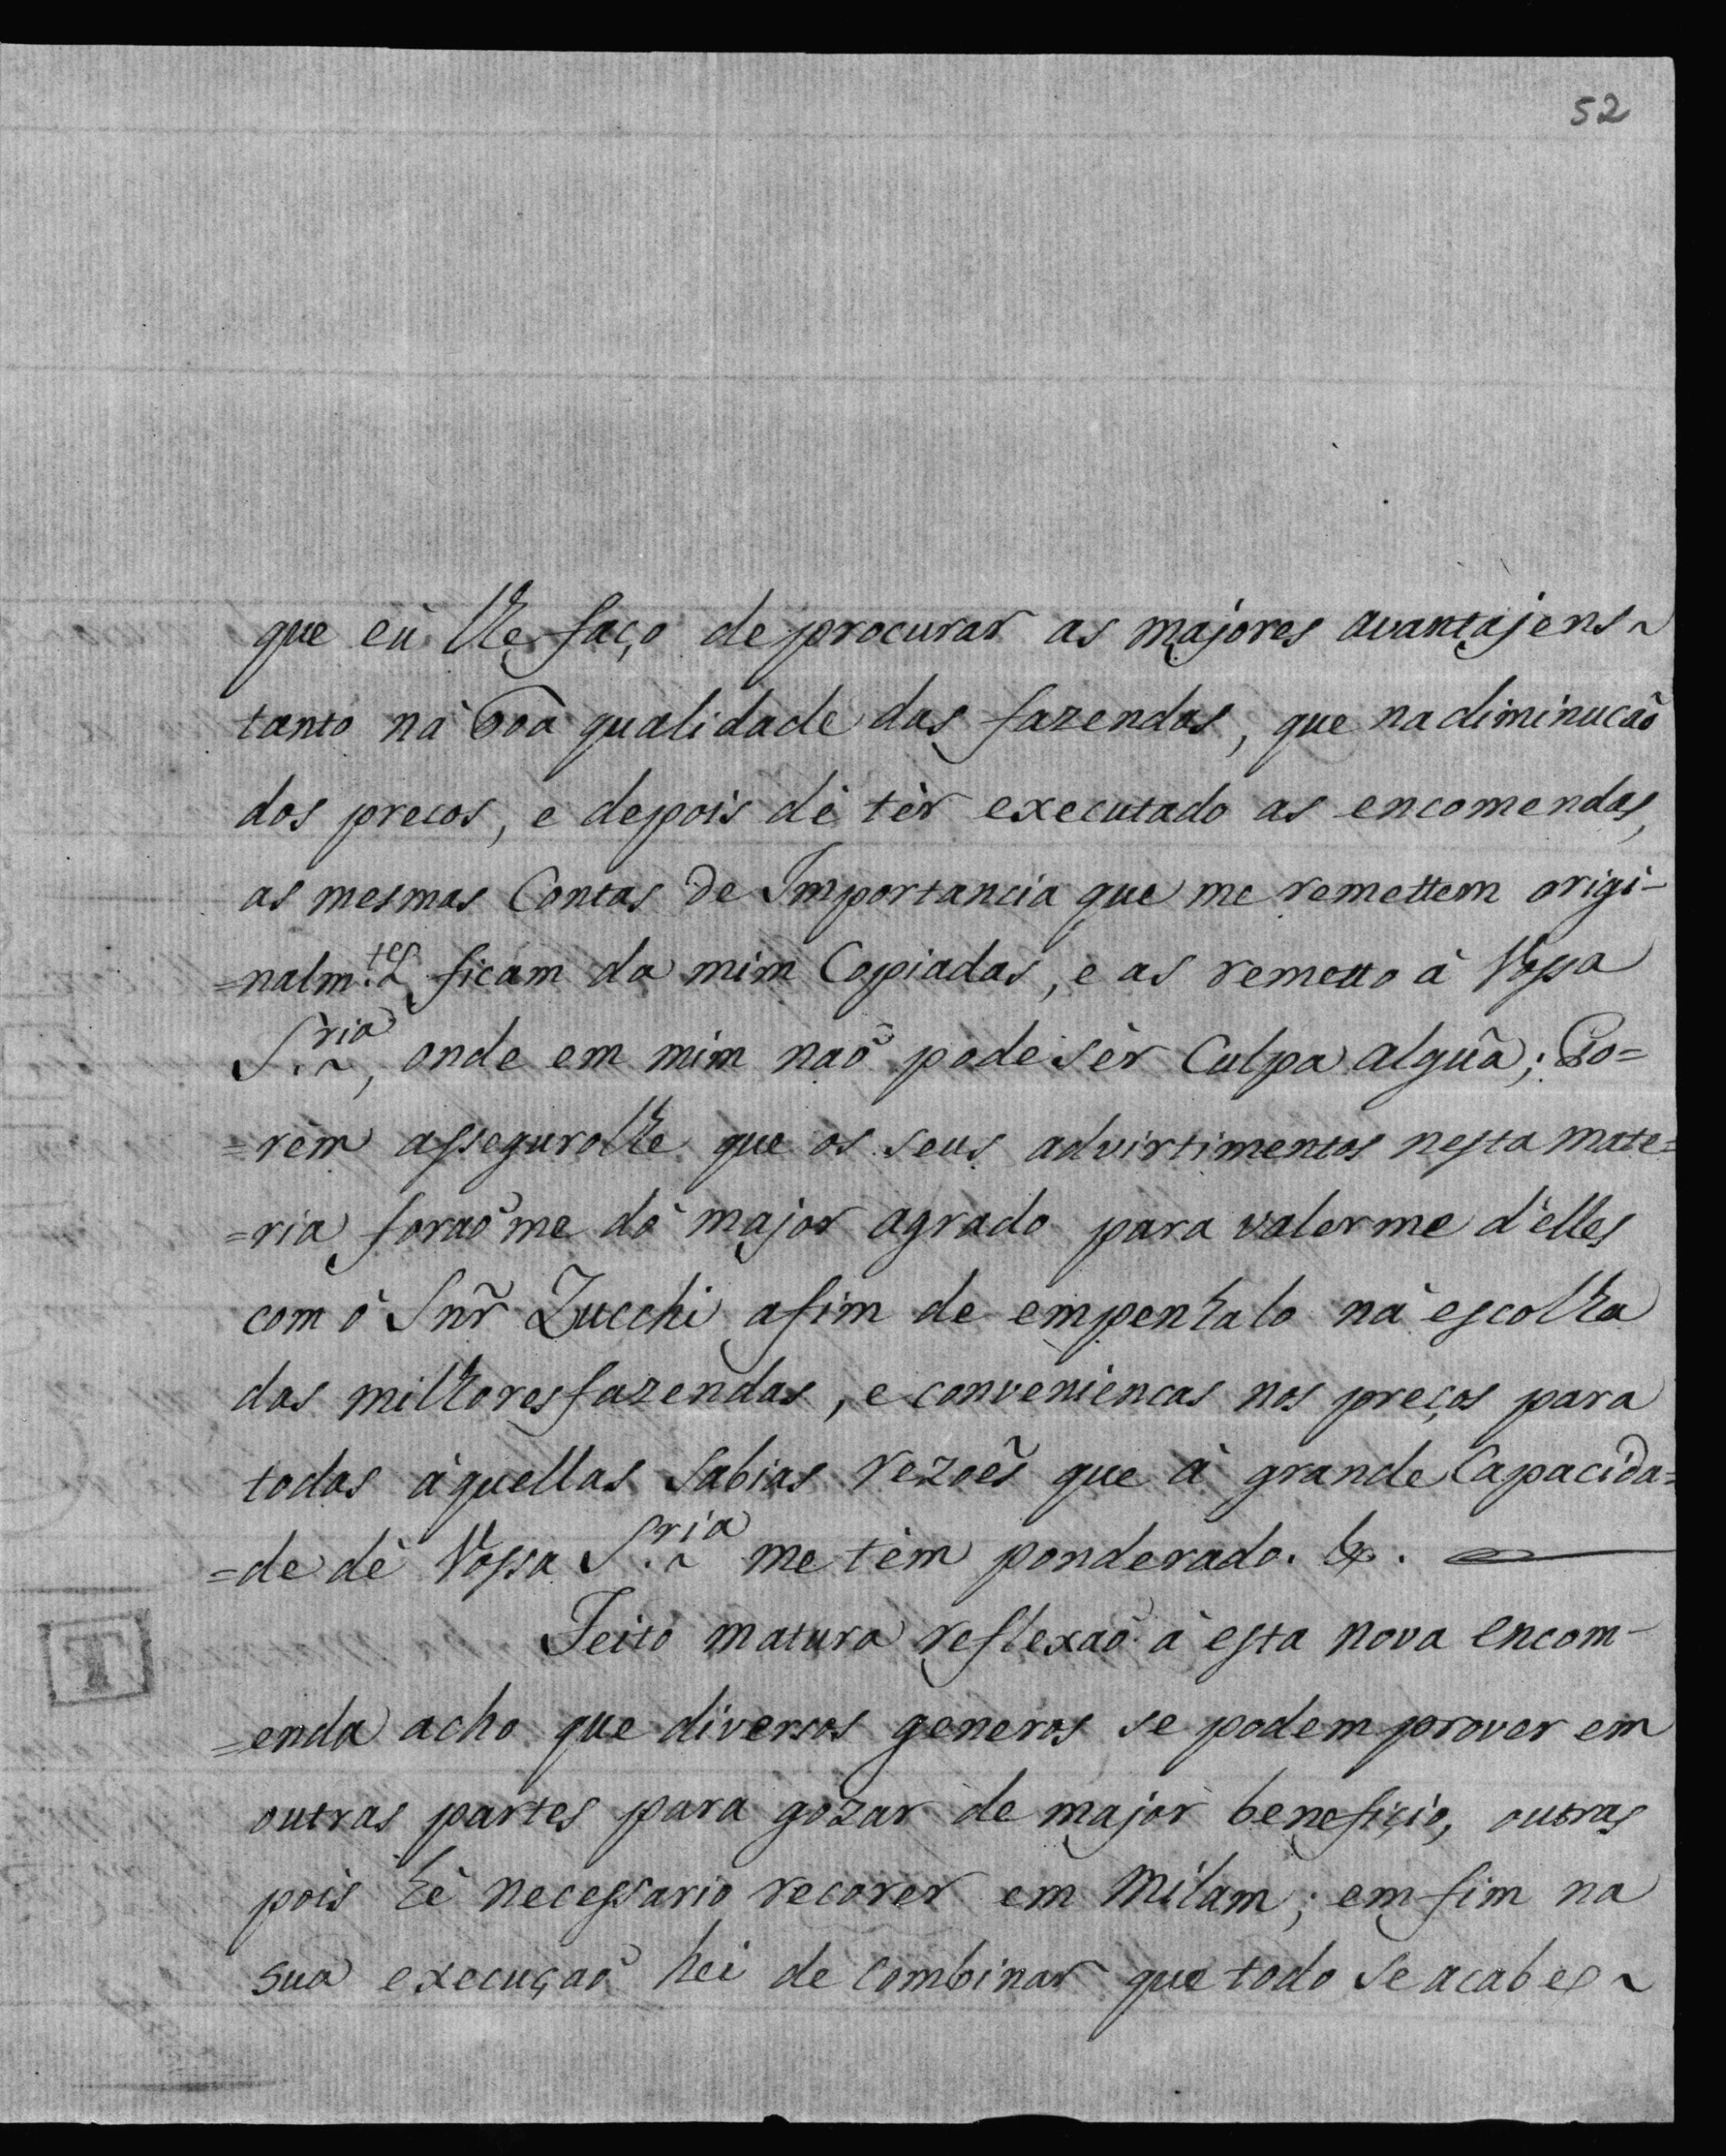 52
que eù lhe faço de procurar as majores avantajens~
tanto nà boà qualidade das fazendas, que na diminucaõ
dos precos, e depois dè tèr executado as encomendas,
as mesmas Contas de Importancia que me remettem origi-
=nalm.tes ficam da mim Copiadas, e as remetto à Vossa
S.ria, onde em mim naõ pode sèr Culpa algũa; Po=
=rèm assegurolhe que os seus advirtimentos nesta mate=
=ria foraõ me dò major agrado para valerme d'elles
com ò Snr̃ Zucchi afim de empenhalo nà escolha
das milhores fazendas, e conveniencas nos preços para
todas àquellas sabias rezoẽs que à grande Capacida=
=de dè Vossa S.ria me tèm ponderado. &.
Feito matura reflexaõ à esta nova encom-
=enda acho que diversos generos se podem prover em
outras partes para gozar de major benefiçio, outras
pois hè necessario recorer em Milam; em fim na
sua execuçaõ hei de combinar que todo se acabe~
T